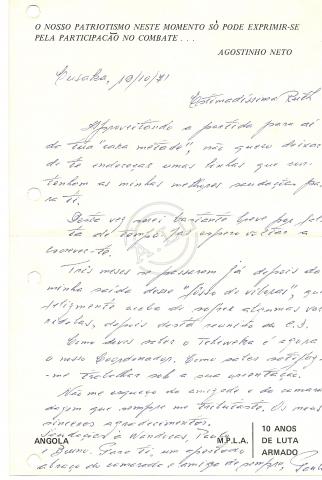 O NOSSO PATRIOTISMO NESTE MOMENTO SÓ PODE EXPRIMIR-SE
PELA PARTICIPAÇÃO NO COMBATE . . .
AGOSTINHO NETO
Lusaka, 19/10/71
Estimadíssima Ruth
Aproveitando a partida para aí
da tua "cara metade", não quero deixar
de te endereçar umas linhas que con-
tenham as minhas melhores saudações pa-
ra ti.
Desta vez serei bastante breve por fal-
ta de tempo, mas espero voltar a
escrever-te.
Três meses se passaram já depois da
minha saída desse "fosso de víboras", que
felizmente acaba de sofrer algumas
depois desta reunião do C.D.
Como deves saber o Tchiweka é agora
o nosso Coordenador. Como sabes satisfaz-
-me trabalhar sob a sua orientação.
Não me esqueço da amizade e da camara-
dagem que sempre me tributaste. Os meus
sinceros agradecimentos.
Saudações a Wanderka,
e Bruno. Para ti, um apertado
abraço do camarada e amigo de sempre,
ANGOLA
M.P.L.A.
10 ANOS
DE LUTA
ARMADO